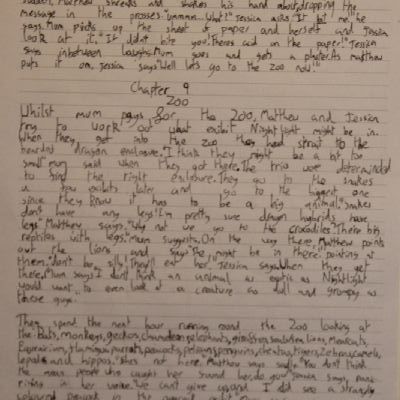 sudden, Matthew shreeks and shakes his hand about, dropping the
message in the prosses. "ummm. What?" Jessica asks. "It bit me!" he
says. Mum picks up the sheet of paper and herself and Jessica
look at it. "It didn't bite you. Theres acid on the paper!" Jessica
says inbetween laughs. Mum goes and gets a plaster. As Matthew
puts it on, Jessica says "Well lets go to the zoo now!"
Chapter 9
ZOO
Whilst mum pays for the zoo, Matthew and Jessica
try to work out what exibit Nightlight might be in.
When they get into the zoo they head strait to the
bearded dragon enclosure. "I think they might be a bit too
small" mum said when they got there. The trio were determinded
to find the right enclosure. They go to the snakes
exibits later and go to the biggest one
since they know it has to be a big animal. "Snakes
don't have any legs! I'm pretty sure dragon hybrids have
legs" Matthew says. "Why not we go to the crocodiles? There big
reptiles with legs." Mum suggests. On the way there, Matthew points
out the lions and says "She might be in there" pointing at
them. "don't be silly! They'll eat her" Jessica says. When they get
there, Mum says "I don't think an animal as exotic as Nightlight
would want to even look at a creature so dull and grumpy as
these guys.
They spend the next hour running round the zoo looking at
the: Bats, Monkeys, geckos, chameleons, elephants, giraffes, sealions, lions, Meercats,
flamingos, parrots, peacocks, pelicans, penguins, cheetas, tigers, zebras, camels,
lepards and hippos. "She's not here" Matthew says sadly. "You don't think
the mean people who caught her found her, do you?" Jessica says, panic
rising in her voice. "We can't give up and I did see a strangly
coloured peacock in the